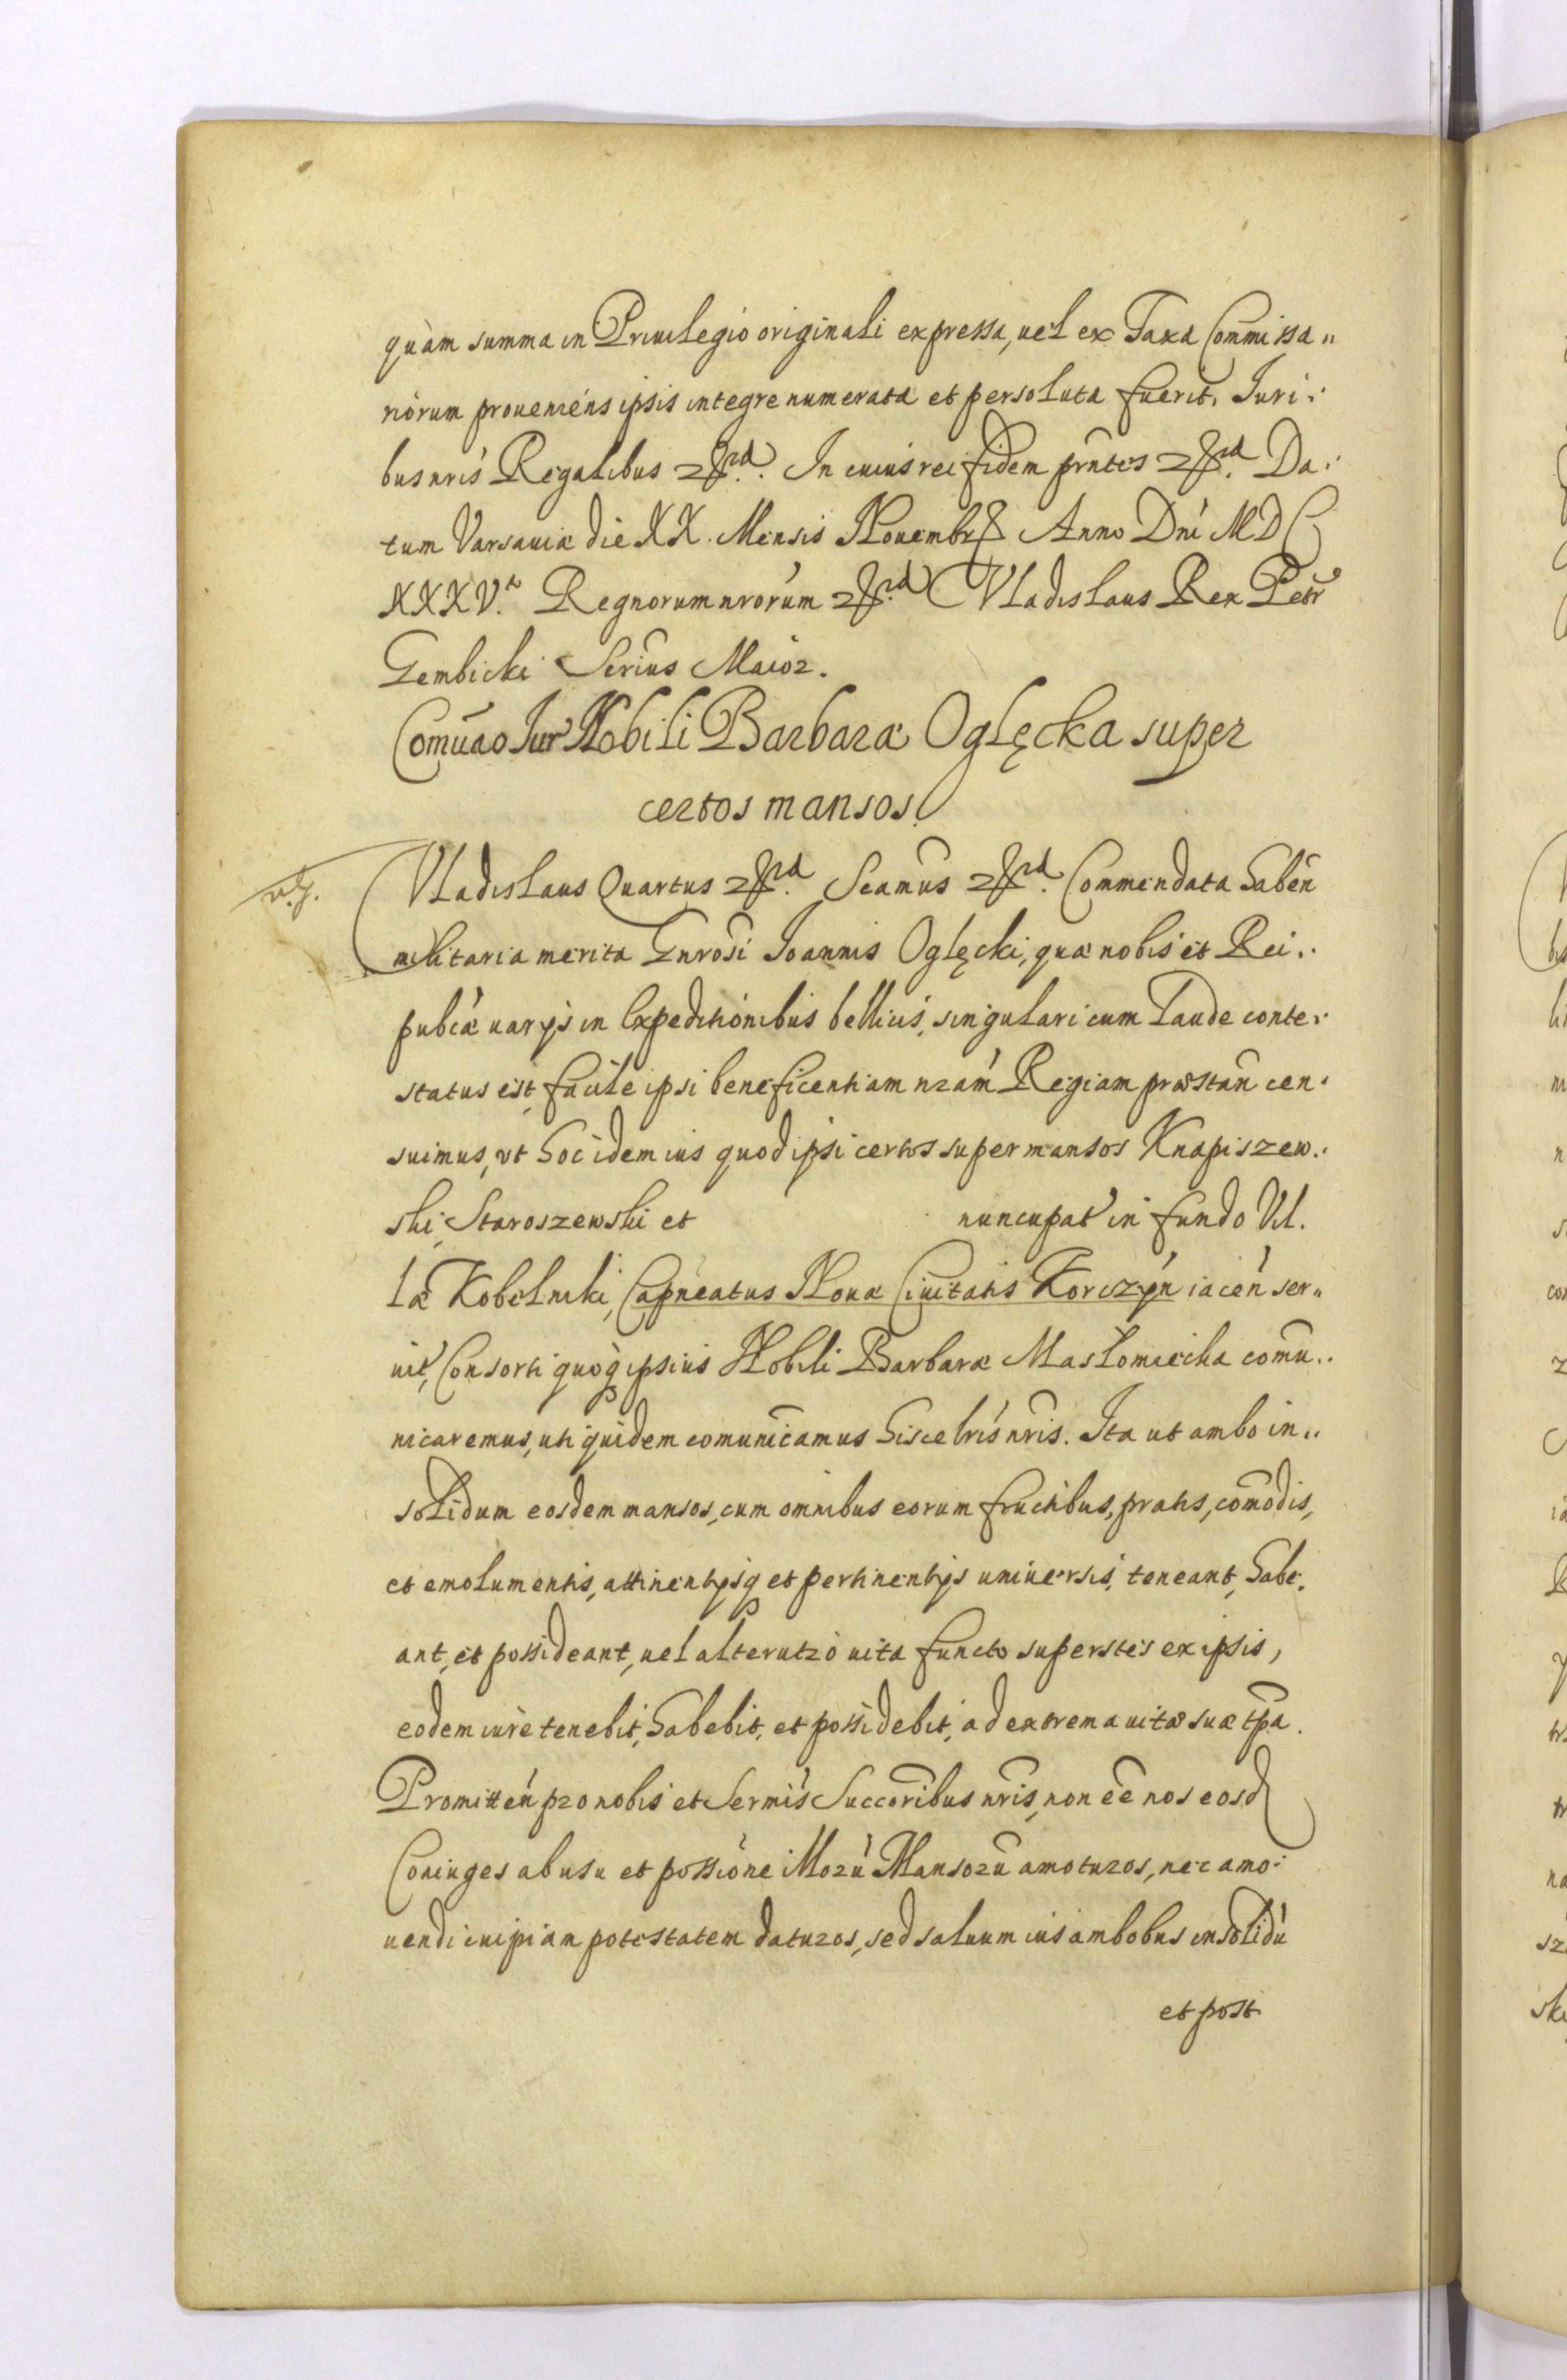 quàm summa in Priuilegio originali expressa, uel ex Taxa Commissa„
riorum proueniens ipsis integre numerata et persoluta fuerit. Iuri:
bus nris Regalibus In cuius rei fidem prntes Da:
tum Varsauiæ die XX. Mensis Nouembr Anno Dni MDC
XXXV.to Regnorum nrorum Vladislaus Rex Petr
Gembicki Secrius Maior.
Comuao Iur Nobili Barbaræ Oglęcka super
certos mansos.
Vladislaus Quartus Seamus Commendata haben
militaria merita Gnrosi Ioannis Oglęcki, quæ nobis et Rei:
pubcæ uarijs in Expeditionibus bellicis, singulari cum Laude conte:
status est, facile ipsi beneficentiam nram Regiam præstan cen:
suimus, vt hoc idem ius quod ipsi certos super mansos Knapiszew:
ski, Staroszewski et nuncupat in fundo Vil.
læ Kobelniki, Capneatus Nouæ Ciuitatis Korczyn iacen ser„
uit, Consorti quoq ipsius Nobili Barbaræ Masłomiecka comu„
nicaremus, uti quidem comunicamus hisce lris nris. Ita ut ambo in„
solidum eosdem mansos, cum omnibus eorum fructibus, pratis, comodis,
et emolumentis, attinentijsq et pertinentijs uniuersis, teneant, habe,
ant, et possideant, uel alterutro uita functo superstes ex ipsis,
eodem iure tenebit, habebit, et possidebit, ad extrema uitæ suæ tpa.
Promitten pro nobis et Sermis Succoribus nris, non ee nos eosd
Coniuges ab usu et possione illoru Mansoru amoturos, nec amo:
uendi cuipiam potestatem daturos, sed saluum ius ambobus insolidu
et post